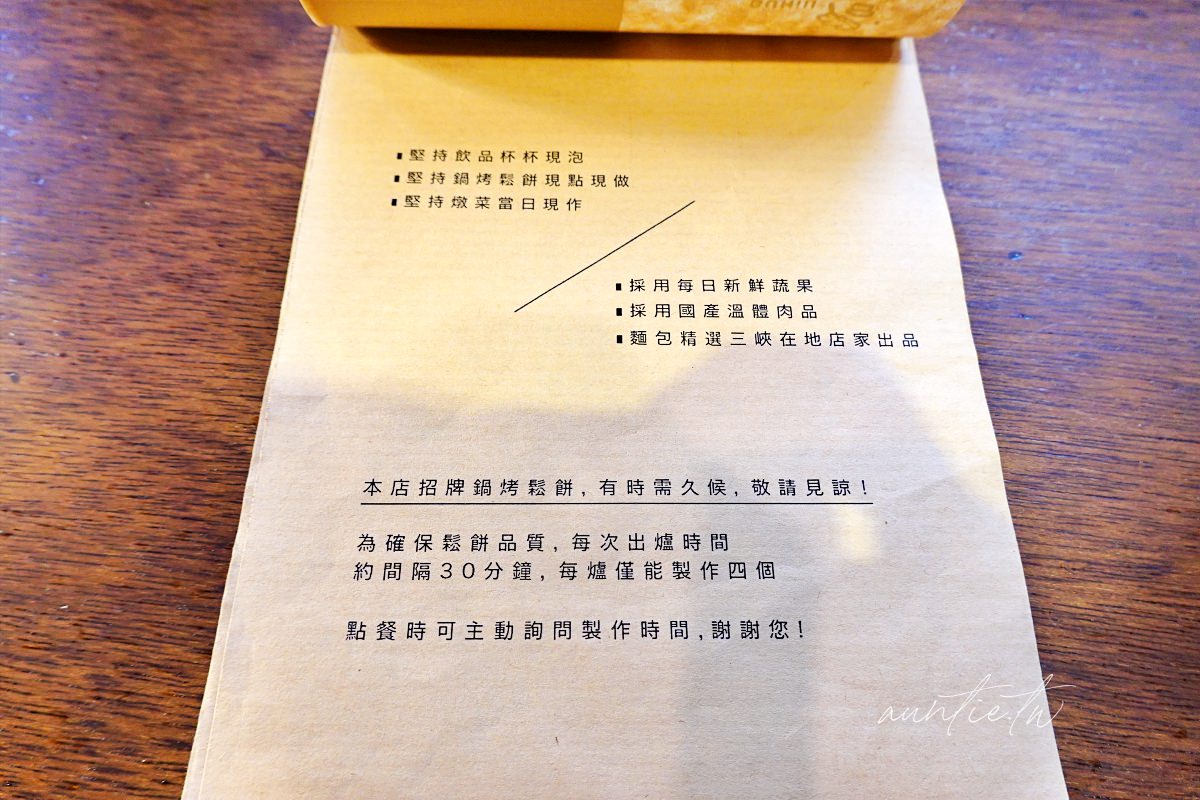 ▪堅持飲品杯杯現泡
▪堅持鍋烤鬆餅現點現做
▪堅持燉菜當日現作
▪採用每日新鮮蔬果
▪採用國產溫體肉品
▪麵包精選三峽在地店家出品
本店招牌鍋烤鬆餅,有時需久候,敬請見諒!
為確保鬆餅品質,每次出爐時間
約間隔30分鐘,每爐僅能製作四個
點餐時可主動詢問製作時間,謝謝您!
auntie.tw